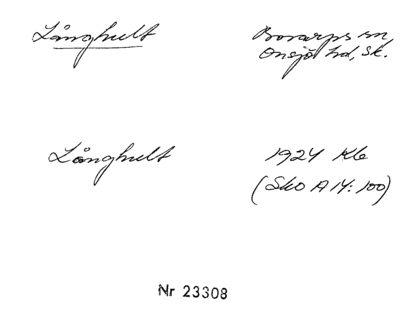 Långhult
Bosarps sn,
Onsjö hd, Sk.
Långhult
1924 Kb
(Sko A 14:100)
Nr 23308